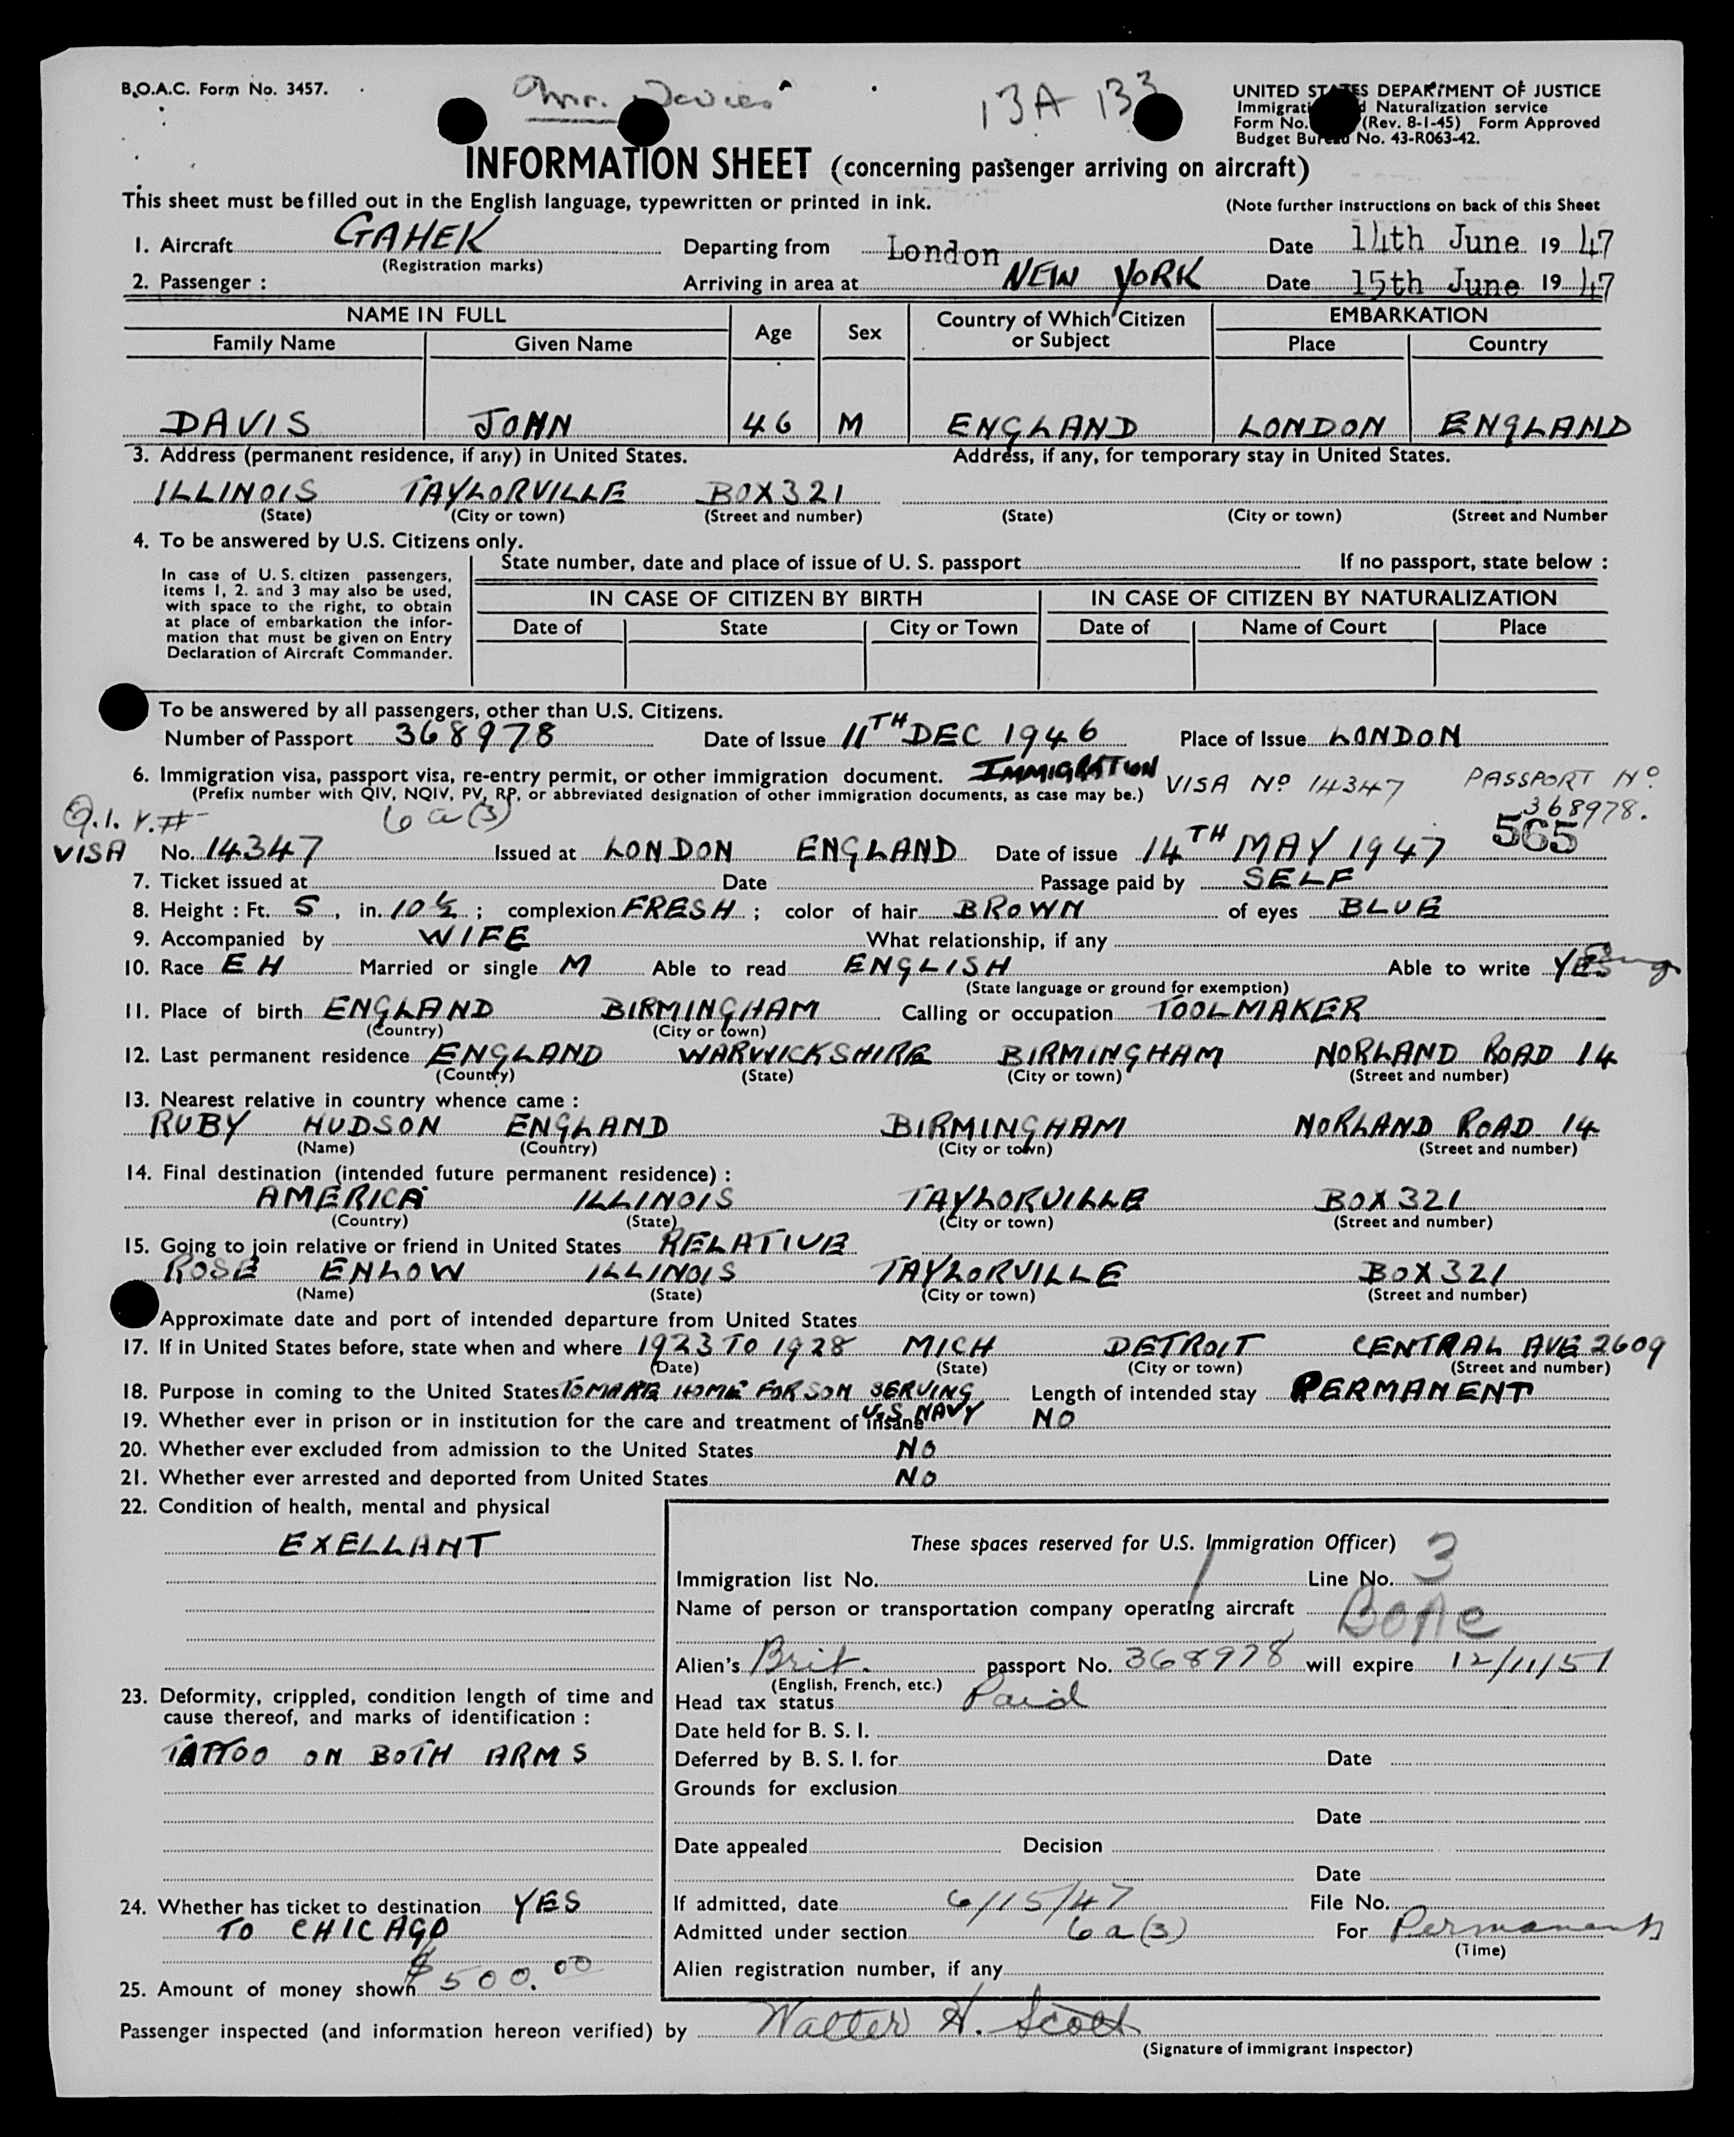 B.O.A.C. Form No. 3457.
Mr. Davies
13A 133
UNITED STATES DEPARTMENT OF JUSTICE
Immigrati d Naturalization service
Form No. (Rev. 8-1-45) Form Approved
Budget Bureau No. 43-R063-42.
INFORMATION SHEET (concerning passenger arriving on aircraft)
This sheet must be filled out in the English language, typewritten or printed in ink.
(Note further instructions on back of this Sheet
1. Aircraft GAHEK Departing from London Date 14th June 19 47
(Registration marks)
2. Passenger : Arriving in area at NEW YORK Date 15th June 19 47
NAME IN FULL Age Sex Country of Which Citizen or Subject EMBARKATION
Family Name Given Name Place Country
DAVIS JOHN 46 M ENGLAND LONDON ENGLAND
3. Address (permanent residence, if any) in United States. Address, if any, for temporary stay in United States.
ILLINOIS TAYLORVILLE BOX 321
(State) (City or town) (Street and number) (State) (City or town) (Street and Number
4. To be answered by U.S. Citizens only.
State number, date and place of issue of U. S. passport If no passport, state below :
In case of U. S. citizen passengers,
items 1, 2. and 3 may also be used,
with space to the right, to obtain
at place of embarkation the infor-
mation that must be given on Entry
Declaration of Aircraft Commander.
IN CASE OF CITIZEN BY BIRTH IN CASE OF CITIZEN BY NATURALIZATION
Date of State City or Town Date of Name of Court Place
To be answered by all passengers, other than U.S. Citizens.
Number of Passport 368978 Date of Issue 11TH DEC 1946 Place of Issue LONDON
6. Immigration visa, passport visa, re-entry permit, or other immigration document. IMMIGRATION VISA No 14347 PASSPORT No 368978.
(Prefix number with QIV, NQIV, PV, RP, or abbreviated designation of other immigration documents, as case may be.)
Q.I.V.# 6a(3) 565
VISA No. 14347 Issued at LONDON ENGLAND Date of issue 14TH MAY 1947
7. Ticket issued at Date Passage paid by SELF
8. Height : Ft. 5, in. 10½ ; complexion FRESH ; color of hair BROWN of eyes BLUE
9. Accompanied by WIFE What relationship, if any
10. Race EH Married or single M Able to read ENGLISH Able to write YES Eng
(State language or ground for exemption)
11. Place of birth ENGLAND BIRMINGHAM Calling or occupation TOOLMAKER
(Country) (City or town)
12. Last permanent residence ENGLAND WARWICKSHIRE BIRMINGHAM NORLAND ROAD 14
(Country) (State) (City or town) (Street and number)
13. Nearest relative in country whence came :
RUBY HUDSON ENGLAND BIRMINGHAM NORLAND ROAD 14
(Name) (Country) (City or town) (Street and number)
14. Final destination (intended future permanent residence) :
AMERICA ILLINOIS TAYLORVILLE BOX 321
(Country) (State) (City or town) (Street and number)
15. Going to join relative or friend in United States RELATIVE
ROSE ENLOW ILLINOIS TAYLORVILLE BOX 321
(Name) (State) (City or town) (Street and number)
Approximate date and port of intended departure from United States
17. If in United States before, state when and where 1923 TO 1928 MICH DETROIT CENTRAL AVE 2609
(Date) (State) (City or town) (Street and number)
18. Purpose in coming to the United States TO MAKE HOME FOR SON SERVING U.S NAVY Length of intended stay PERMANENT
19. Whether ever in prison or in institution for the care and treatment of insane NO
20. Whether ever excluded from admission to the United States NO
21. Whether ever arrested and deported from United States NO
22. Condition of health, mental and physical
EXELLANT
23. Deformity, crippled, condition length of time and
cause thereof, and marks of identification :
TATTOO ON BOTH ARMS
24. Whether has ticket to destination YES
TO CHICAGO
25. Amount of money shown $500.00
These spaces reserved for U.S. Immigration Officer)
Immigration list No. 1 Line No. 3
Name of person or transportation company operating aircraft BOAC
Alien's Brit. passport No. 368978 will expire 12/11/51
(English, French, etc.)
Head tax status Paid
Date held for B. S. I.
Deferred by B. S. I. for Date
Grounds for exclusion
Date
Date appealed Decision
Date
If admitted, date 6/15/47 File No.
Admitted under section 6a(3) For Permanent
(Time)
Alien registration number, if any
Passenger inspected (and information hereon verified) by Walter H. Scott
(Signature of immigrant inspector)